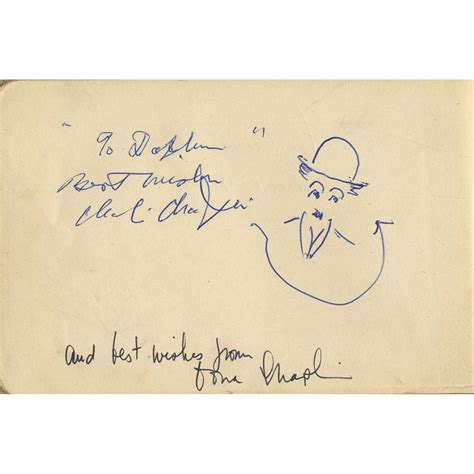 " To Daphne "
Best wishes
Charlie Chaplin
and best wishes from
Oona Chaplin